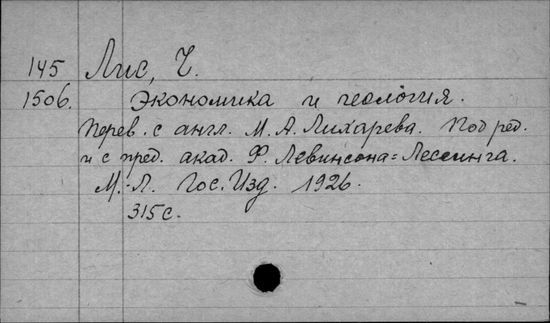 145 Лис, Ч.
1506. Экономика и геология.
Перев. с англ. М. А. Лихарева. Под ред.
и с пред. акад. Ф. Левинсона=Лессинга.
М.-Л. Гос. Изд. 1926.
315 с.